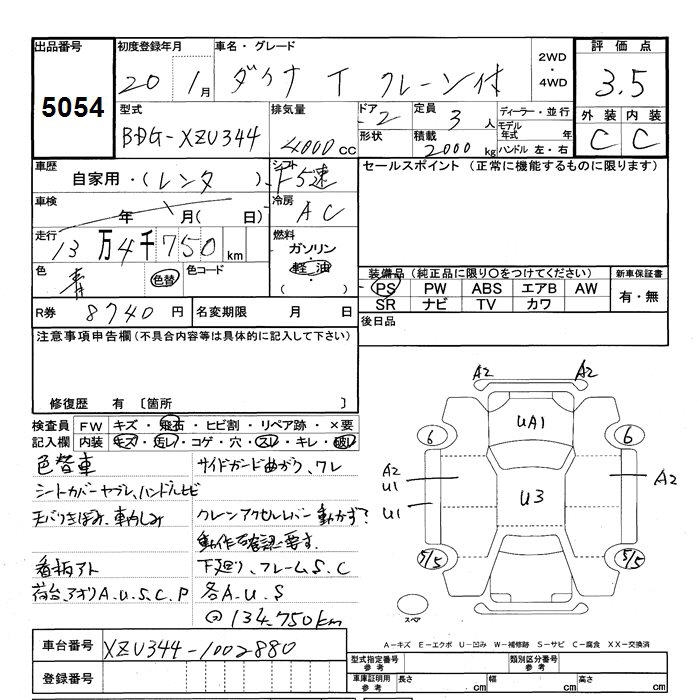 出品番号
5054
初度登録年月
20 1月
車名・グレード
ダイナ T クレーン付
2WD
・
4WD
評価点
3.5
外装 内装
C C
型式
BDG-XZU344
排気量
4000cc
ドア
2
形状
定員
3人
積載
2000kg
ディーラー・並行
モデル年式 年
ハンドル 左・右
車歴
自家用・(レンタ )
シフト
F5速
セールスポイント (正常に機能するものに限ります)
車検
年 月( 日)
冷房
AC
走行
13万4千750km
燃料
ガソリン
・
軽油
( )
色
青
色替
色コード
R券 8740円
名変期限 月 日
装備品 (純正品に限り○をつけてください)
PS PW ABS エアB AW
SR ナビ TV カワ
新車保証書
有・無
後日品
注意事項申告欄 (不具合内容等は具体的に記入して下さい)
修復歴 有 〔箇所 〕
検査員記入欄
FW キズ・飛石・ヒビ割・リペア跡・×要
内装 キズ・汚レ・コゲ・穴・スレ・キレ・破レ
色替車
シートカバーヤブレ、ハンドルヒビ
看板アト
荷台、アオリA.U.S.C.P
サイドガード曲がり、ワレ
クレーンアクセルレバー動かず?
動作確認要す。
下廻り、フレームS.C
各A.U.S
134.750km
A2 A2
UA1
6 6
A2
U1
U1
U3
A2
5/5 5/5
スペア
A-キズ E-エクボ U-凹み W-補修跡 S-サビ C-腐食 XX-交換済
車台番号
XZU344-1002880
登録番号
型式指定番号
参考
類別区分番号
参考
車庫証明用
参考
長さ cm 幅 cm 高さ cm